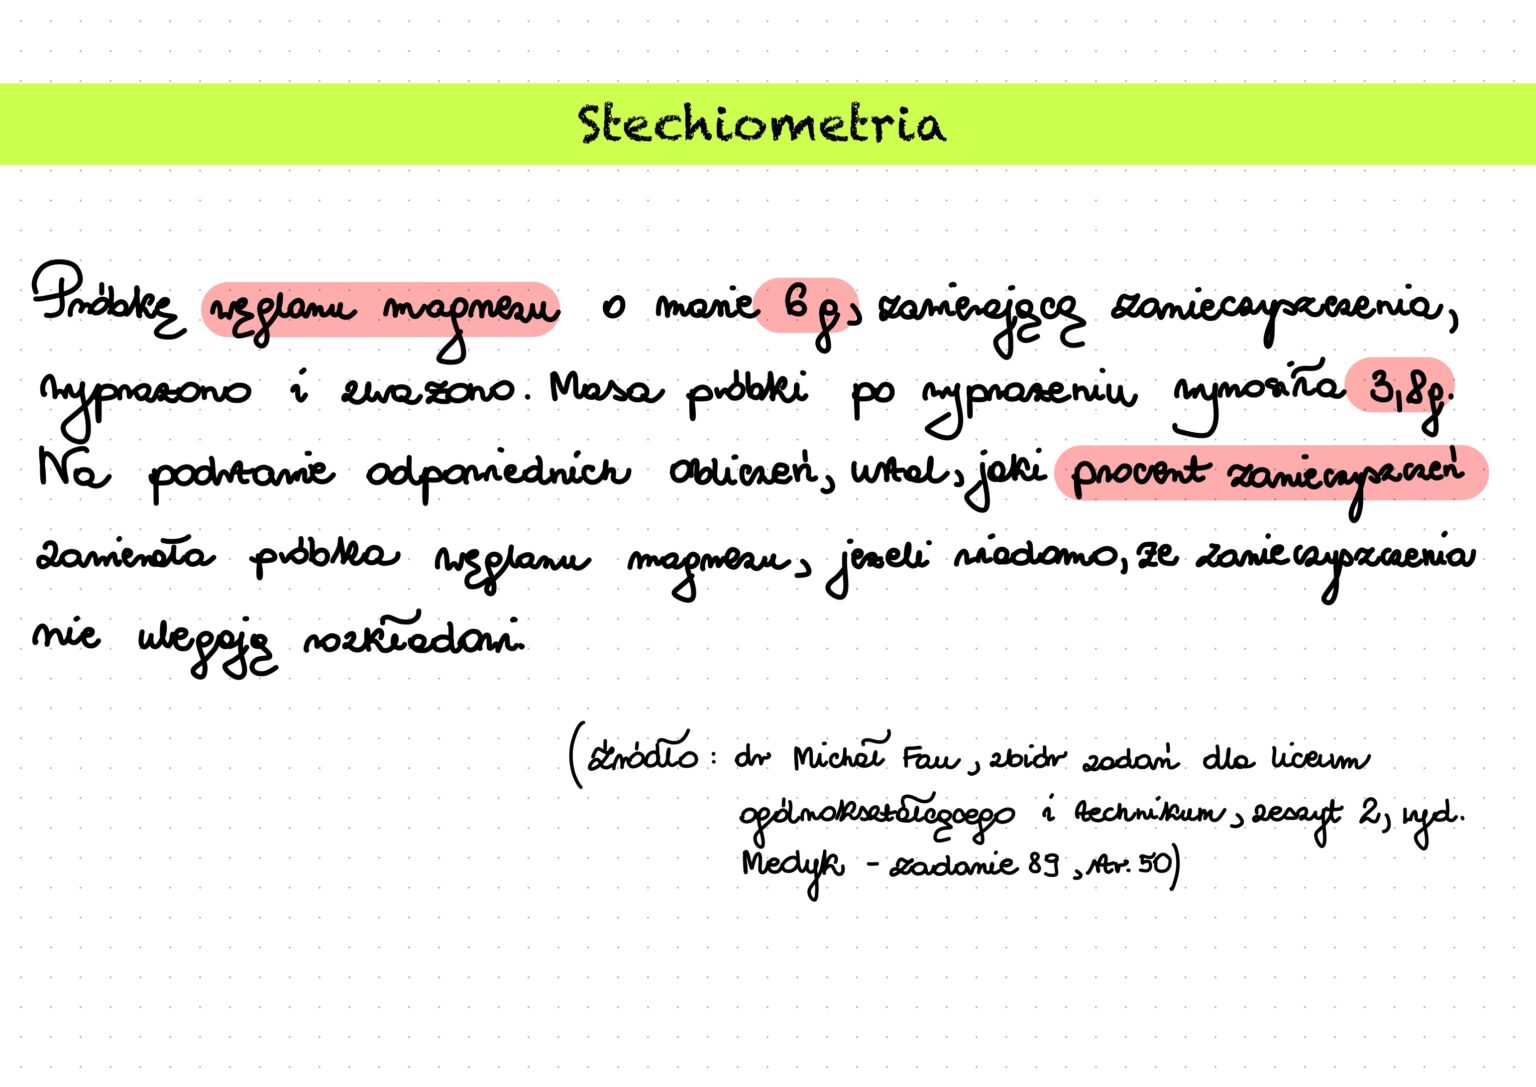 Stechiometria
Próbkę węglanu magnezu o masie 6 g, zawierającą zanieczyszczenia,
wyprażono i zważono. Masa próbki po wyprażeniu wynosiła 3,8g.
Na podstawie odpowiednich obliczeń, ustal, jaki procent zanieczyszczeń
zawierała próbka węglanu magnezu, jeżeli wiadomo, że zanieczyszczenia
nie ulegają rozkładowi.
(źródło: dr Michał Fau, zbiór zadań dla liceum
ogólnokształcącego i technikum, zeszyt 2, wyd.
Medyk - zadanie 89, str. 50)